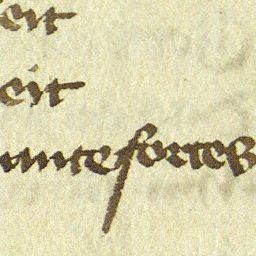 eit
eit
ante fortes